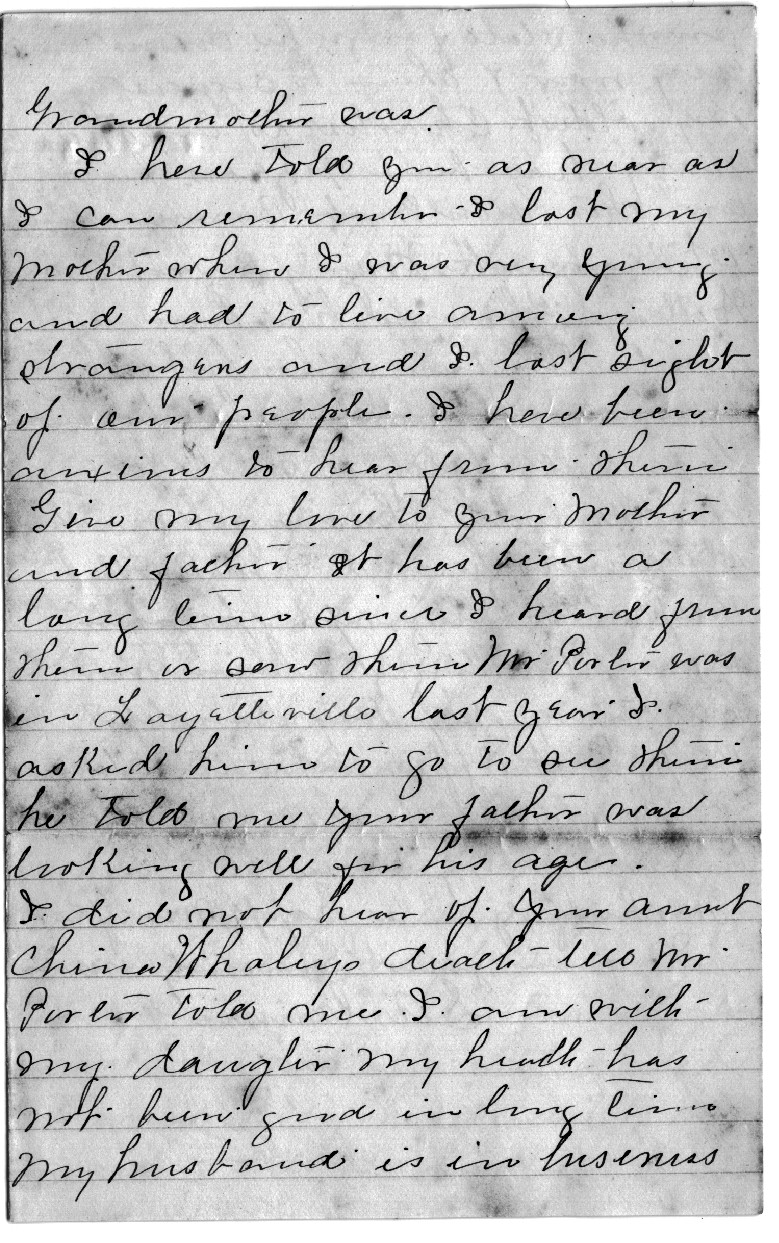 Grandmother was
I have told you as near as
I can remember I lost my
Mother when I was very young
and had to live among
strangers and I lost sight
of our people. I have been
anxious to hear from them
Give my love to your Mother
and father It has been a
long time since I heard from
them or saw them Mr Porter was
in Fayetteville last year I.
asked him to go to see them
he told me your father was
looking well for his age.
I did not hear of your aunt
China Whaleys death till Mr.
Porter told me I am with
my daughter my health has
not been good in long time
my husband is in buseness